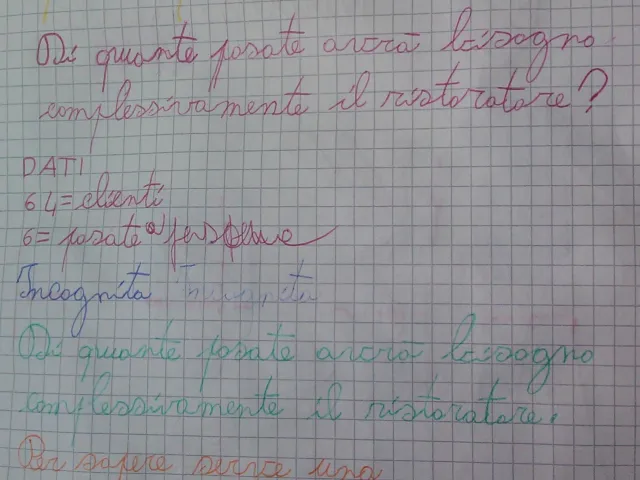 Di quante posate avrà bisogno
complessivamente il ristoratore?
DATI
64=clienti
6= posate a persona
Incognita
Di quante posate avrà bisogno
complessivamente il ristoratore.
Per sapere serve una